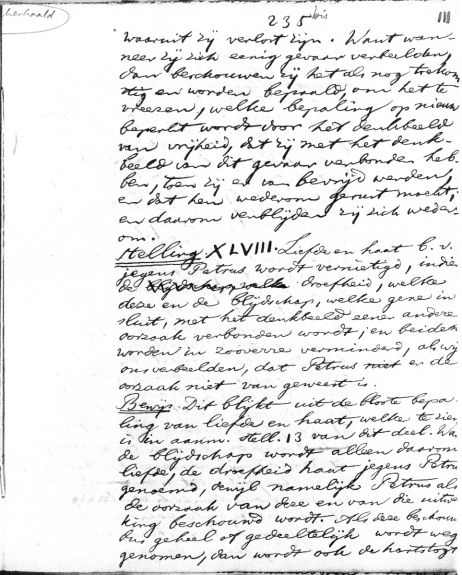 herhaald
235 bis
III
waaruit zij verlost zijn. Want wan-
neer zij zich eenig gevaar verbeelden,
dan beschouwen zij het als nog toekom
stig en worden bepaald, om het te
vreezen, welke bepaling op nieuw
beperkt wordt door het denkbeeld
van vrijheid, dat zij met het denk-
beeld van dit gevaar verbonden heb-
ben, toen zij er van bevrijd werden,
en dat hen wederom gerust maakt;
en daarom verblijden zij zich weder-
om.
Stelling XLVIII. Liefde en haat b.v.
jegens Petrus wordt vernietigd, indien
de droefheid, welke
deze en de blijdschap, welke gene in
sluit, met het denkbeeld eener andere
oorzaak verbonden wordt; en beiden
worden in zooverre verminderd, als wij
ons verbeelden, dat Petrus niet er de
oorzaak niet van geweest is.
Bewijs. Dit blijkt uit de bloote bepa-
ling van liefde en haat, welke te zien
is in aanm. Stell. 13 van dit deel. Want
de blijdschap wordt alleen daarom
liefde, de droefheid haat jegens Petrus
genoemd, dewijl namelijk Petrus als
de oorzaak van deze en van die uitwer
king beschouwd wordt. Als deze beschouw
dus geheel of gedeeltelijk wordt weg
genomen, dan wordt ook de hartstogt